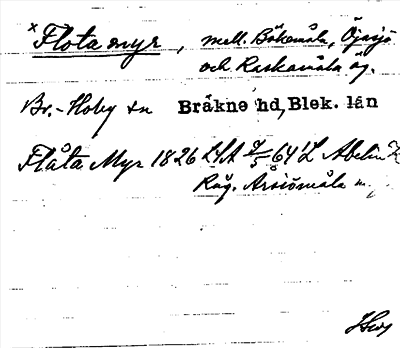 x Flota myr, mell. Bökemåla, Öjasjö
och Raskamåla äg.
Br.-Hoby sn Bräkne hd, Blek. län
Flåta Myr 1826 LSA 64 L Abelin
Råg. Årsiömåla m.